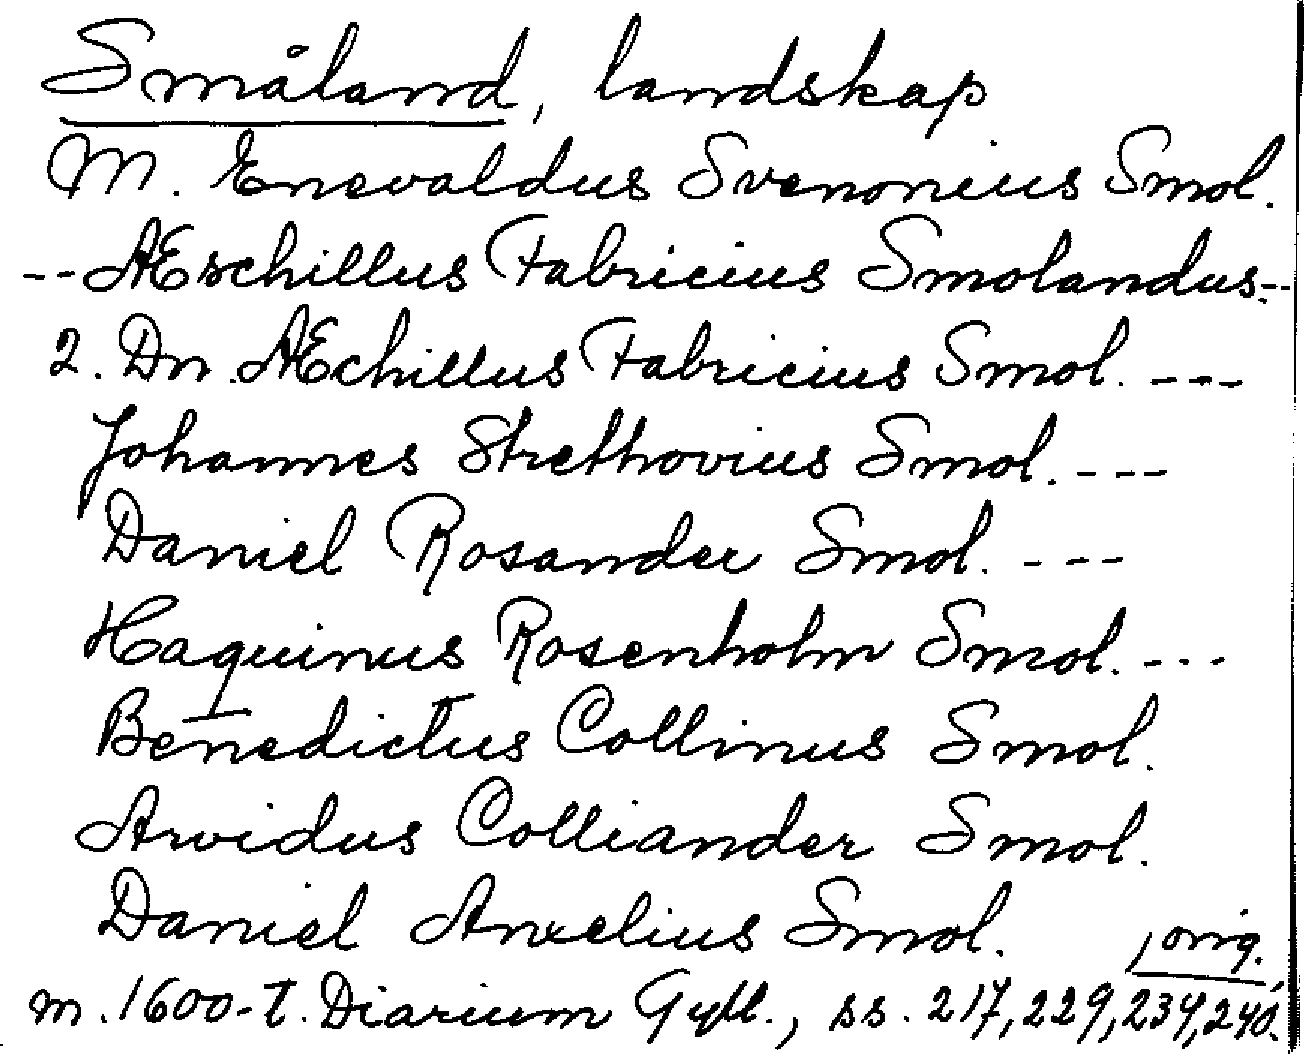 Småland, landskap
M. Enevaldus Svenonius Smol.
-- AEschillus Fabricius Smolandus--
2. Dn. AEchillus Fabricius Smol. ---
Johannes Strethovius Smol. ---
Daniel Rosander Smol. ---
Haquinus Rosenholm Smol. ---
Benedictus Collinus Smol.
Arvidus Colliander Smol.
Daniel Anxelius Smol.
, orig.
m. 1600-t. Diarium Gyll., ss. 217, 229, 234, 240.